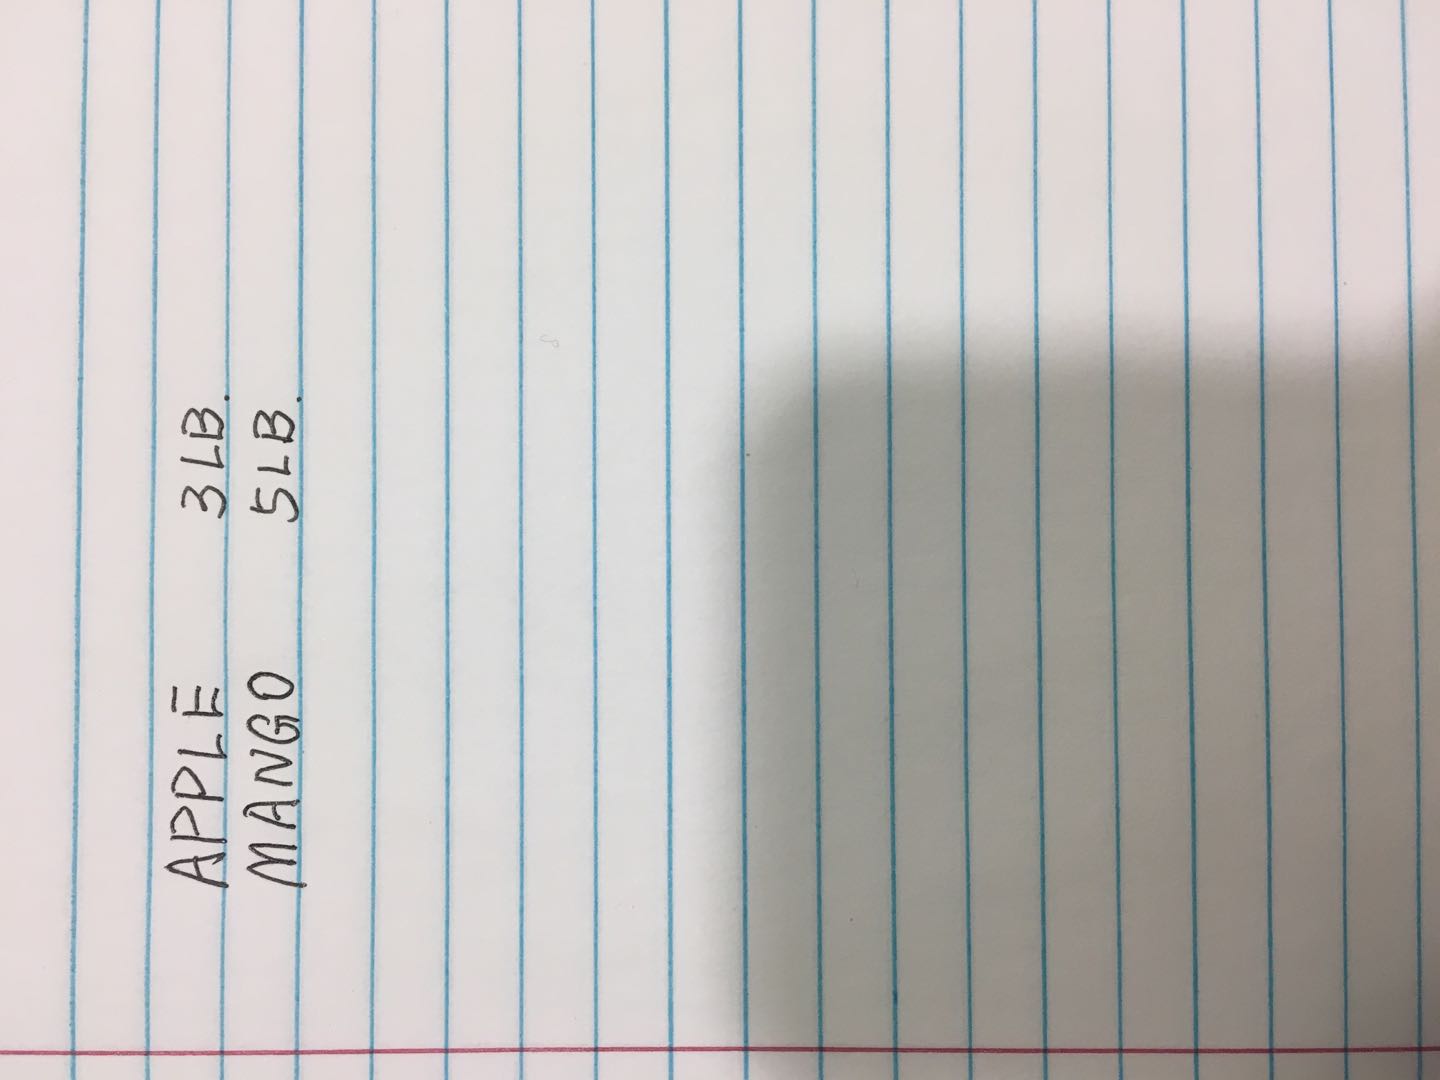 APPLE 3 LB.
MANGO 5 LB.